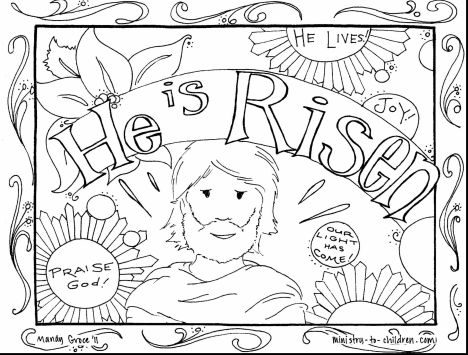 HE LIVES!
JOY!
He is Risen
OUR
LIGHT
HAS
COME!
PRAISE
GOD!
Mandy Groce '11
ministry-to-children.com